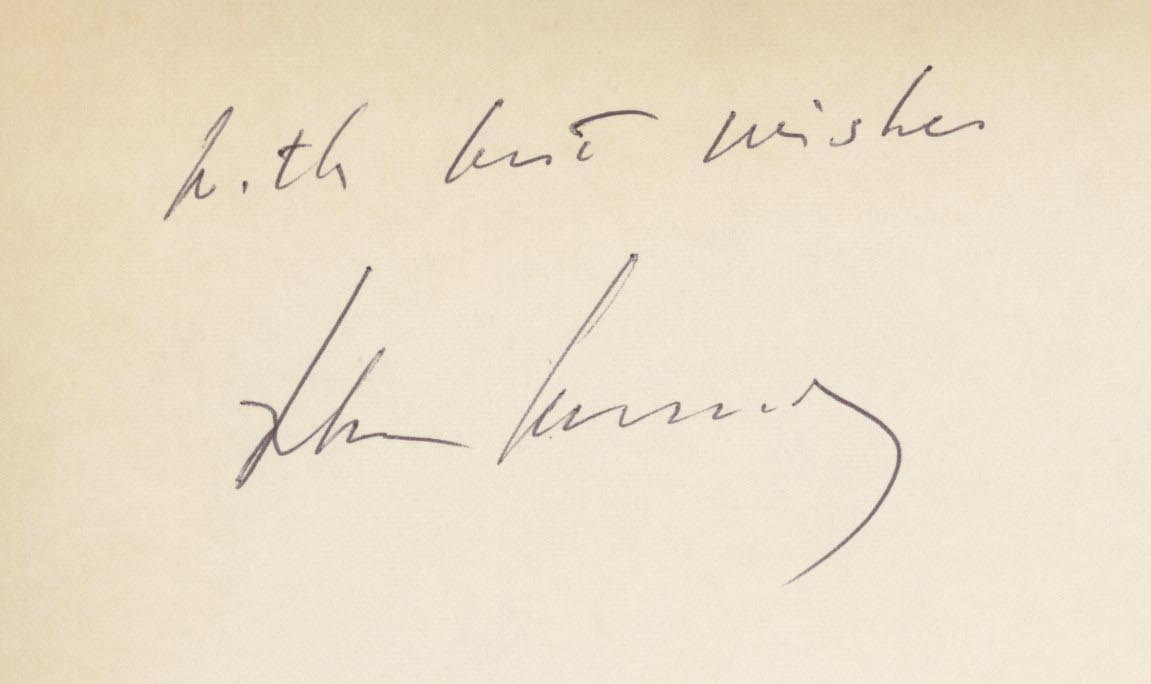 with best wishes
John Kennedy